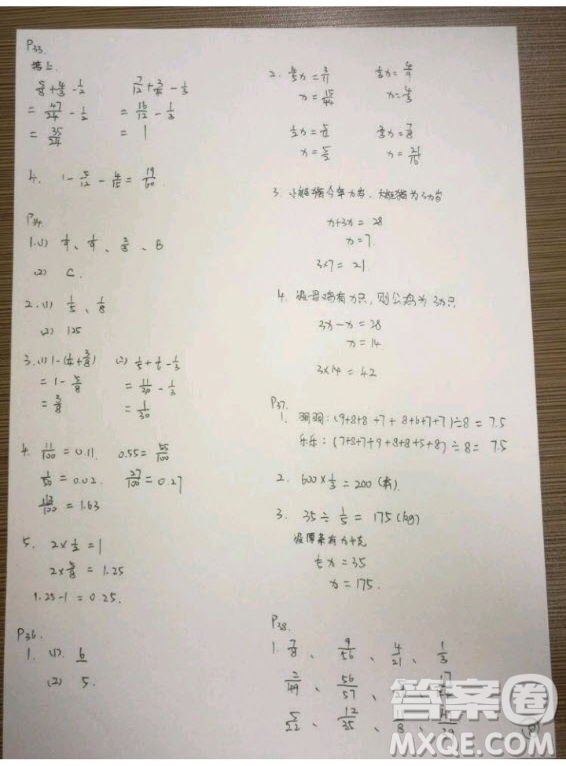 P33.
5/8+4/3-1/2   7/12+3/4-1/3
=47/24-1/2   =16/12-1/3
=35/24   =1
4. 1-5/12-4/15=19/60
P34
1.(1) 1/4、1/4、3/8、B
(2) C.
2.(1) 1/5、1/8
(2) 125
3.(1) 1-(1/4+3/8)   (2) 1/5+1/6-1/3
=1-5/8   =11/30-1/3
=3/8   =1/30
4. 11/100=0.11   0.55=55/100
1/50=0.02   27/100=0.27
163/100=1.63
5. 2×1/2=1
2×5/8=1.25
1.25-1=0.25.
P36.
1. (1). 6
(2) 5.
2.
x=15/44   x=4/3
x=5/2   x=21/16
3. 小姐猫今年x岁,
x+3x=28
x=7.
3×7=21
4. 设母鸡有x只,则公鸡为3x只
3x-x=28
x=14.
3×14=42
P37.
1. 羽羽:(9+8+8+7+8+6+7+7)÷8=7.5
乐乐:(7+8+7+9+8+8+5+8)÷8=7.5
2. 600×1/3=200(本).
3. 35÷1/5=175(kg)
设原来有x千克
1/5x=35
x=175.
P38.
1. 7/8、9/56、4/21、1/3
2/49、56/57、
5/22、12/35、
答案圈
MXQE.COM